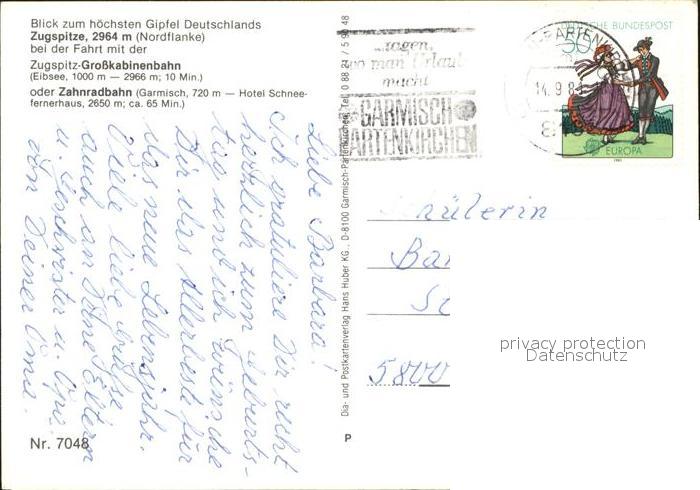 Blick zum höchsten Gipfel Deutschlands
Zugspitze, 2964 m (Nordflanke)
bei der Fahrt mit der
Zugspitz-Großkabinenbahn
(Eibsee, 1000 m — 2966 m; 10 Min.)
oder Zahnradbahn (Garmisch, 720 m — Hotel Schnee-
fernerhaus, 2650 m; ca. 65 Min.)
Liebe Barbara!
Ich gratuliere Dir recht
herzlich zum Geburts-
tag und ich wünsche
Dir das Allerbeste für
das neue Lebensjahr.
Viele liebe Grüsse
auch an Deine Eltern
u. Geschwister u. Opi.
von Deiner Oma.
Nr. 7048
Dia- und Postkartenverlag Hans Huber KG., D-8100 Garmisch-Partenkirchen, Tel. 0 88 21 / 5 90 48
P
...sagen,
wo man Urlaub
macht
GARMISCH
PARTENKIRCHEN
-PARTEN
14. 9. 8
DEUTSCHE BUNDESPOST
50
EUROPA
1981
Schülerin
Ba
Sc
5800
privacy protection
Datenschutz